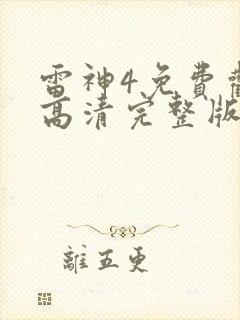 雷神4免費
高清完整版
離五更